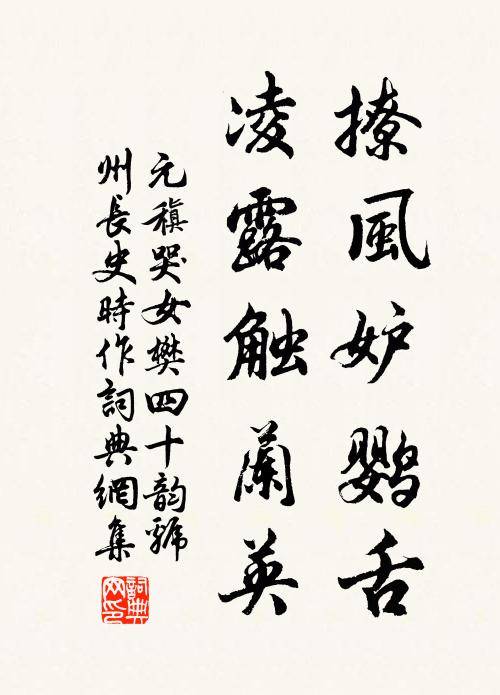 撩風妒鸚舌
凌露触蘭英
元稹哭女樊四十韵虢
州長史時作詞典網集
詞典網印